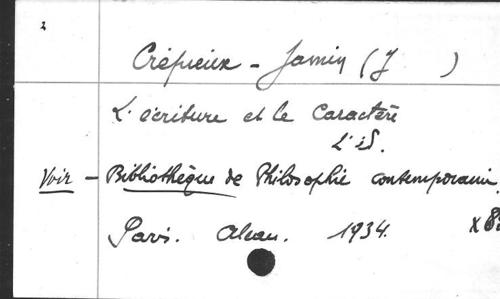 Crépieux - Jamin (J )
L'écriture et le Caractère
L'éd.
Voir - Bibliothèque de Philosophie contemporain
Paris. Alcan. 1934.